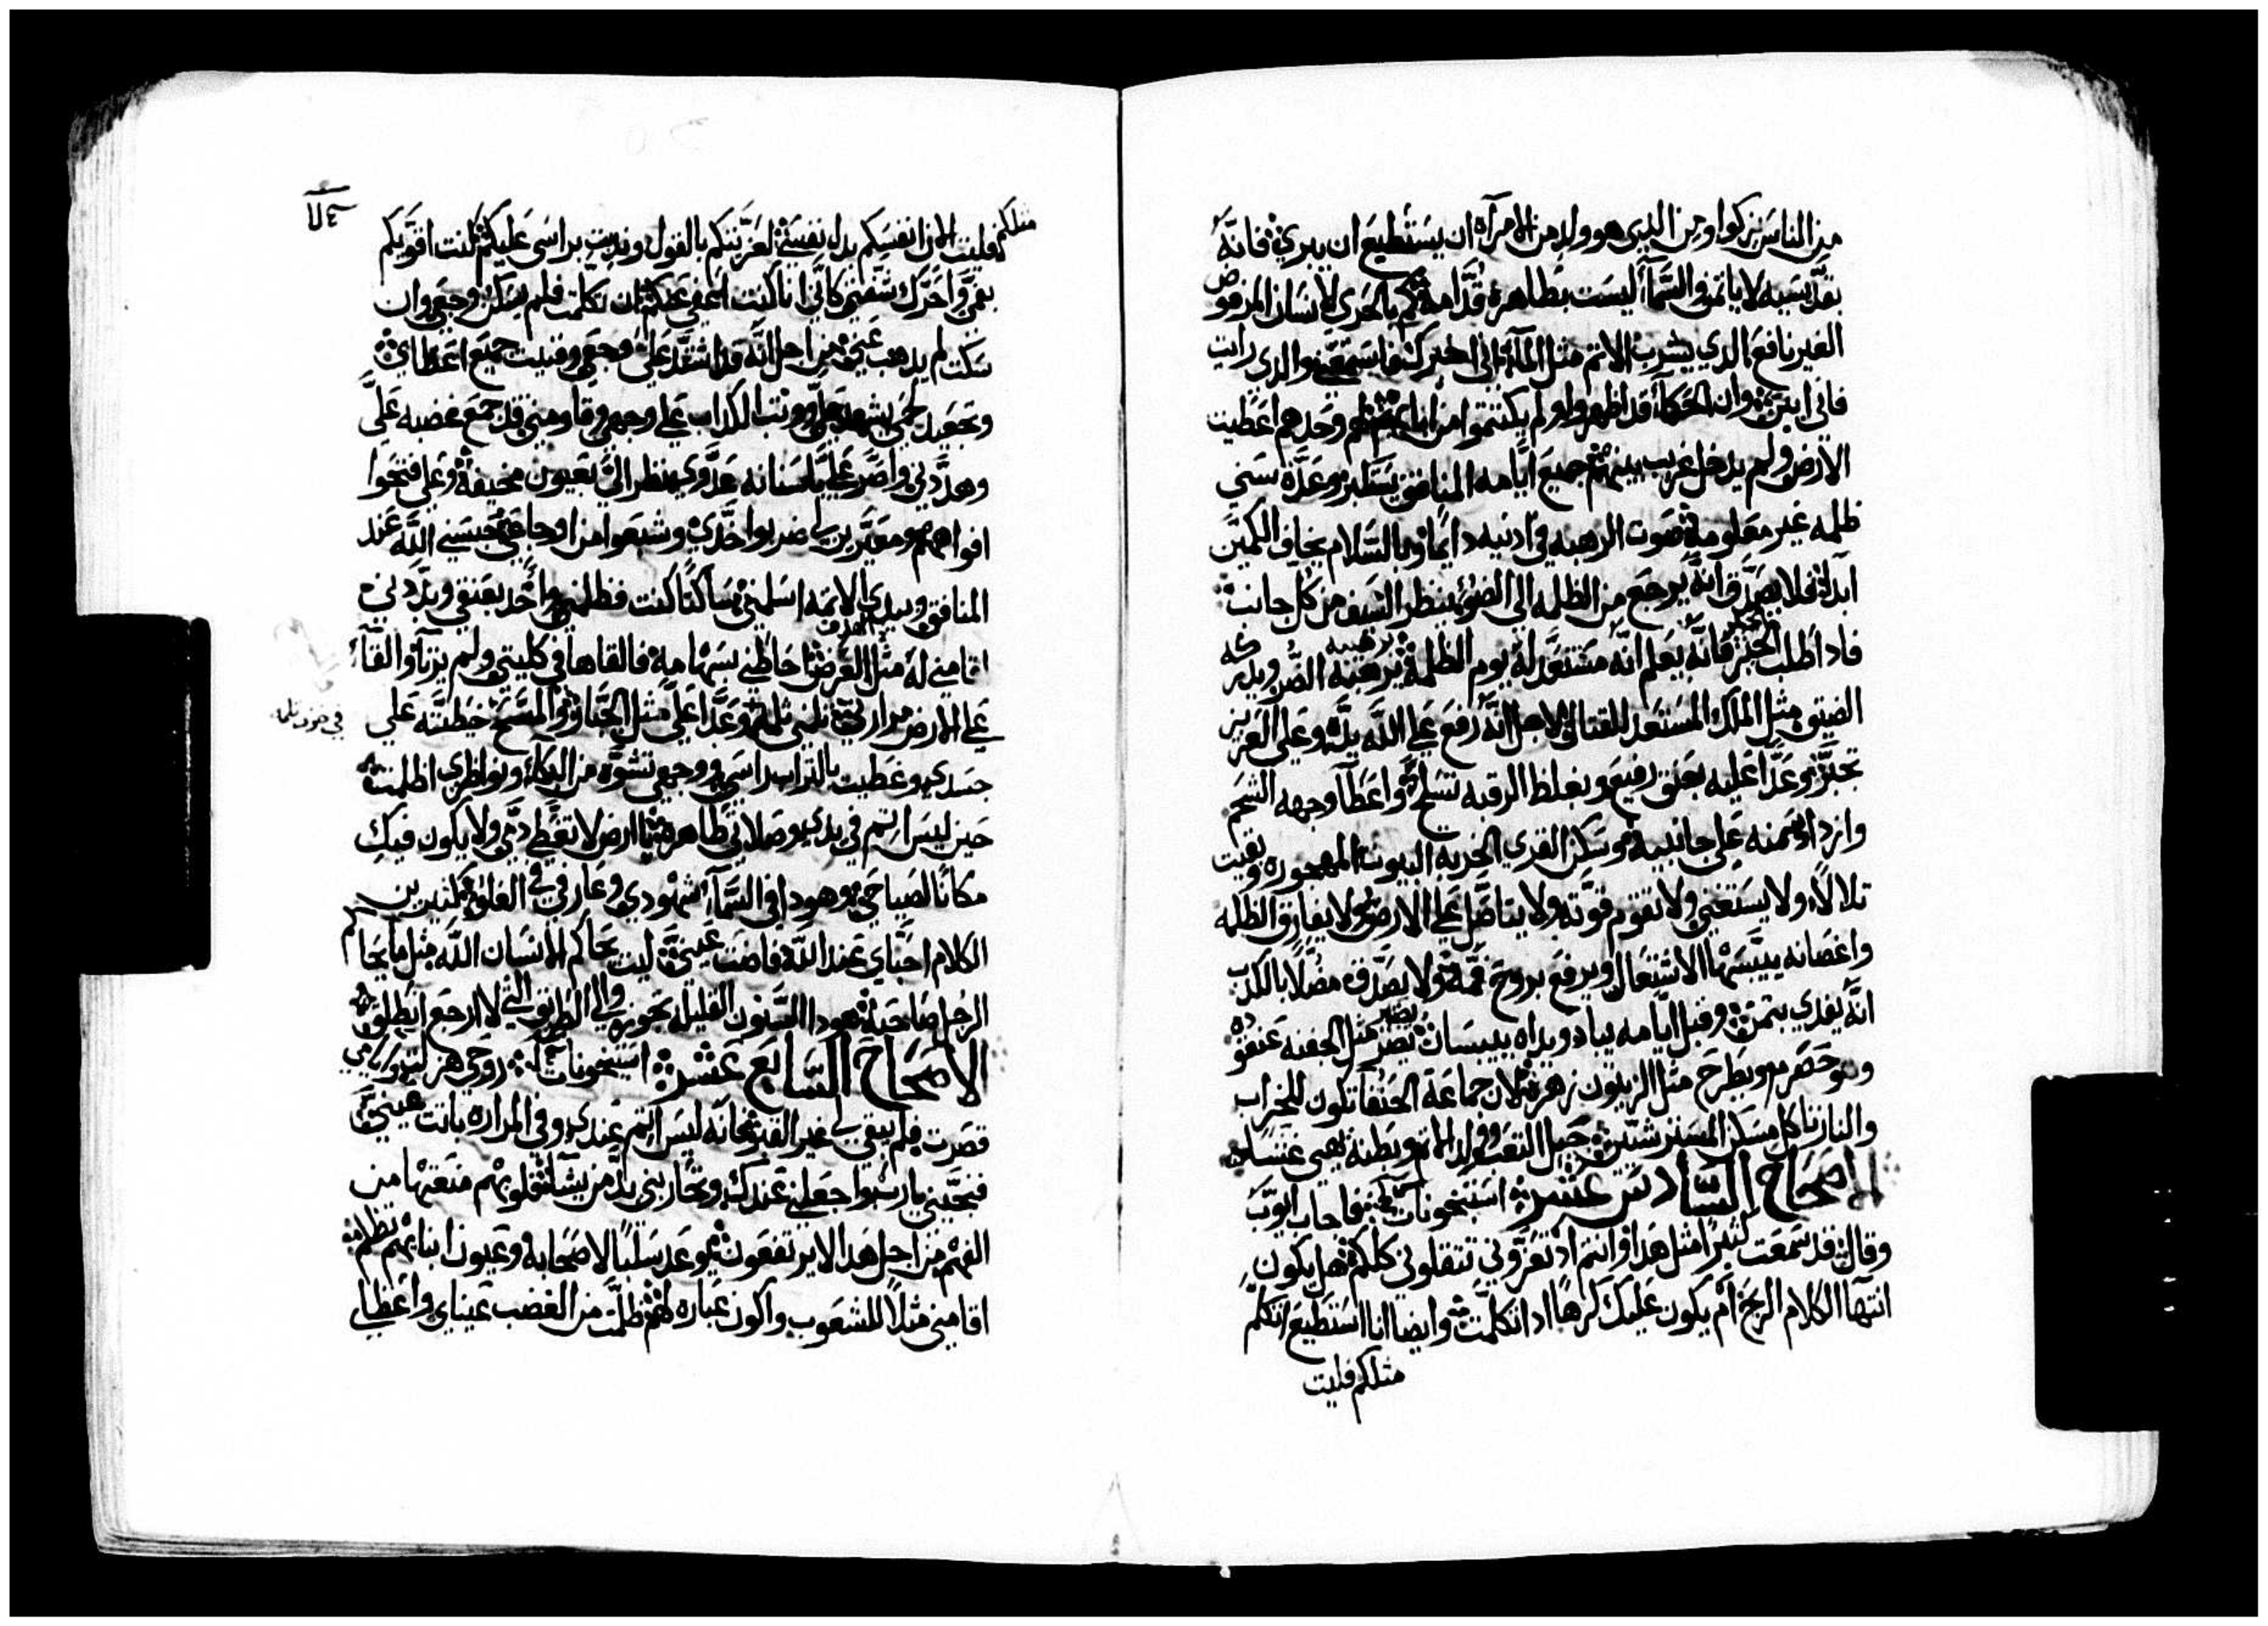 من الناس يزكوا ومن الذي هو ولد من الامرآة ان يستطيع ان يبري فانه
بقديسيه لا ياتمن والسمآ ليست بطاهرة قدامه فكم بالحري لانسان المرفوض
الغير نافع الذي يشرب الاثم مثل المآ اني اخبرك فاسمعني والذي رايت
فاني ابين وان الحكمآ قد اظهروا ولم يكتتموا من ابايهم لهم وحدهم اعطيت
الارض ولم يدخل غريب بينهم جميع ايامه المنافق يستكبر وعدة سني
ظلمه غير معلومة صوت الرهبه في ادنيه دايما وبالسلام يخاف الكمين
ابدا فلا يصدق انه يرجع من الظلمه الي الضوء ينظر السيف من كل جانب
فادا طلب الخبز فانه يعلم انه مستعد له يوم الظلمة يرهبه الضر ويدركه
الضيق مثل الملك المستعد للقتال لاجل انه رفع علي الله يده وعلي العزيز
تجبر وعدا عليه بعنق رفيع وبغلظ الرقبه تسلح واعطآ وجهه الشحم
وازداد سمنه علي جانبيه وسكن القري الخربه البيوت المهجوره وبقيت
تلالا ولا يستغني ولا تقوم قوته ولا يتاصل علي الارض ولا يفارق الظلمه
واغصانه ييبسها الاشتعال ويرفع بروح فمه ولا يصدق مضلا بالكدب
انه يفدي بتمن وقبل ايامه يباد ويداه ييبسان يضر مثل الجفنه عنقوده
وهو حصرم ويطرح مثل الزيتون زهره لان جماعة الحنفا تكون للخراب
والنار تاكل مساكن المسترشين حبل التعب وولد الاثم وبطنه يهيي غشا
الاصحاح السادس عشر استيخونات فاجاب ايوب
وقال قد سمعت كثيرا مثل هدا وانتم اد تعزوني تتقلوني كلكم هل يكون
انتهآ الكلام الريح ام يكون عليك كرها ادا تكلمت وايضا انا استطيع اتكلم
مثلكم فليت
مثلكم فليت لان انفسكم بدل نفسي لعزيتكم بالقول وندبت براسي عليكم كنت اقويكم
بفمي واحرك شفتي كاني انا كنت اعفي عنكم ان تكلمت فلم يسكن وجعي وان
سكت لم يدهب عني من اجل انه قد اشتد علي وجعي وفنيت جميع اعظاي
وتجعيد لحمي يشهد علي ووتب الكداب علي وجهي وقاومني قد جمع غضبه علي
وهددني واصر علي باسنانه عدوي نظر الي بعيون مخيفة وعلي فتحوا
افواههم ومعيرين لي ضربوا خدي وشبعوا من اوجاعي حبسني الله عند
المنافق وبيدي الايمه اسلمني ساكتا كنت فظلمني واخد بعنقي وبددني
اقامني له مثل الغرض احاطني بسهامه فالقاها في كليتي ولم يرتا والقآ
علي الارض مرارتي تلمني تلمه وعدا علي مثل الجبار والمسح خيطته علي
في حزن تلمه
جسدي وغطيت بالتراب راسي ووجهي تشوه من البكآ ونواظري اظلمت
حين ليس اثم في يدي وصلاتي طاهره يا ارض لا تغطي دمي ولا يكون فيك
مكانا لصياحي وهودا في السمآ شهودي وعارفي في العلو مكثرين
الكلام احباي عند الله فاضت عيني ليت يحاكم الانسان الله مثل ما يحاكم
الرجل صاحبه هودا السنون القليله تجوز والي الطريق التي لا ارجع انطلق
الاصحاح السابع عشر استيخونات روحي هزلت وايامي
قصرت فلم يبقي لي غير القبر انه ليس اثم عندي وفي المراره باتت عيني
فنجيني يا رب واجعلني عندك ويحاربني يد من يشآ قلوبهم منعتها من
الفهم من اجل هدا لا يرتفعون يوعد سلبا لاصحابه وعيون ابنايهم تظلم
اقامني مثلا للشعوب واكون عباره لهم ظلمت من الغضب عيناي واعظاي